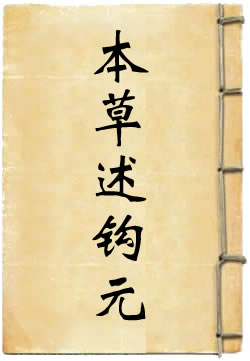 本草述钩元